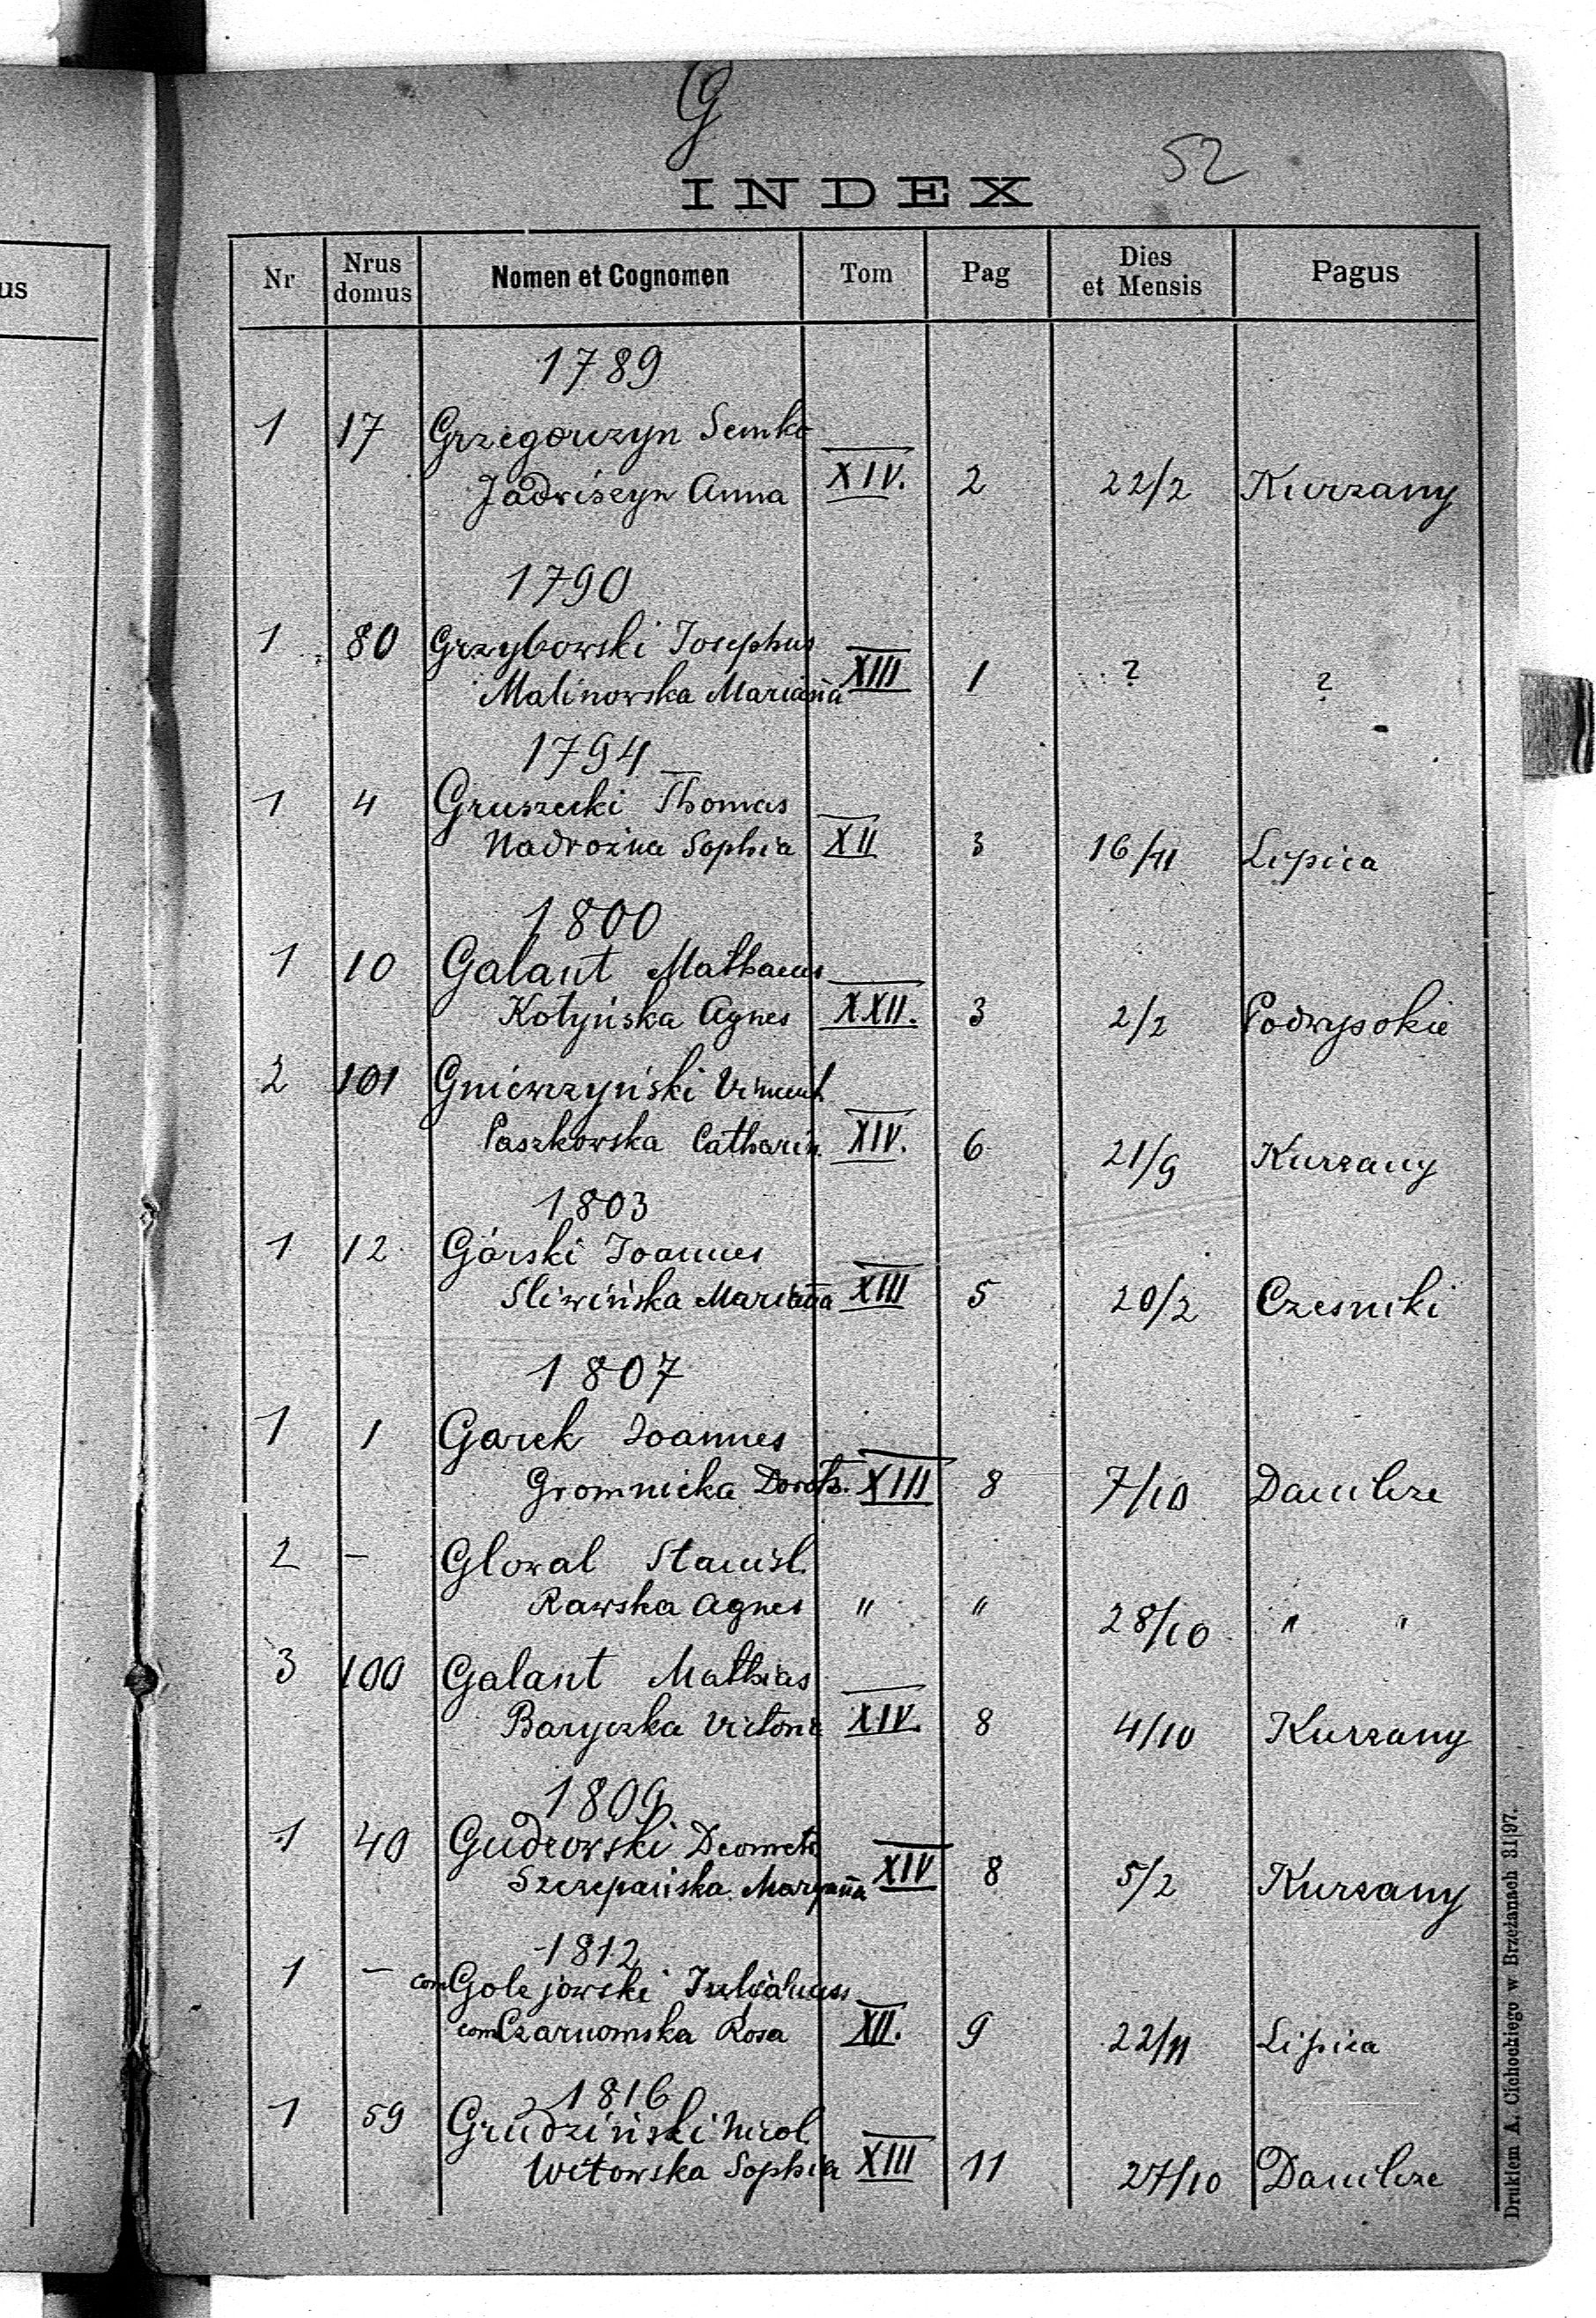 G
52
INDEX
us
Nr Nrus domus Nomen et Cognomen Tom Pag Dies et Mensis Pagus
1789
1 17 Grzegorczyn Semko
Jadwiszyn Anna XIV. 2 22/2 Kurzany
1790
1 80 Grzybowski Josephus
Malinowska Marianna XIII 1 ? ?
1794
1 4 Gruszecki Thomas
Nadrożna Sophia XII 3 16/11 Lipica
1800
1 10 Galant Mathaeus
Kotyńska Agnes XXII. 3 2/2 Podwysokie
2 101 Gniewczyński Vincent
Paszkowska Catharin. XIV. 6 21/9 Kurzany
1803
1 12 Górski Joannes
Sliwińska Marianna XIII 5 20/2 Czesniki
1807
1 1 Garek Joannes
Gromnicka Doroth. XIII 8 7/10 Danilcze
2 – Glowal Stanisl.
Rawska Agnes " " 28/10 " "
3 100 Galant Mathias
Baryczka Victoria XIV. 8 4/10 Kurzany
1809
1 40 Gudzowski
Szczepańska Maryanna XIV 8 5/2 Kurzany
1812
1 – com Golejowski Julianus
com Czarnomska Rosa XII. 9 22/11 Lipica
1816
1 59 Grudziński Nicol.
Witowska Sophia XIII 11 27/10 Danilcze
Drukiem A. Cichockiego w Brzeżanach 31|97.